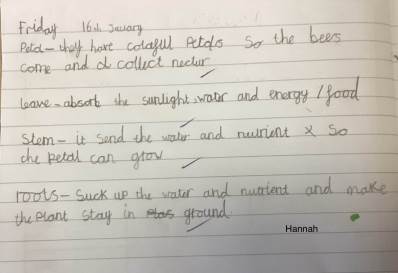 Friday 16th January
Petal - they have colaful Petals so the bees
come and collect nectur
leave - absorb the sunlight, water and energy / food
Stem - it send the water and nutrient x so
the petal can grow
roots - suck up the water and nutrient and make
the plant stay in ground
Hannah